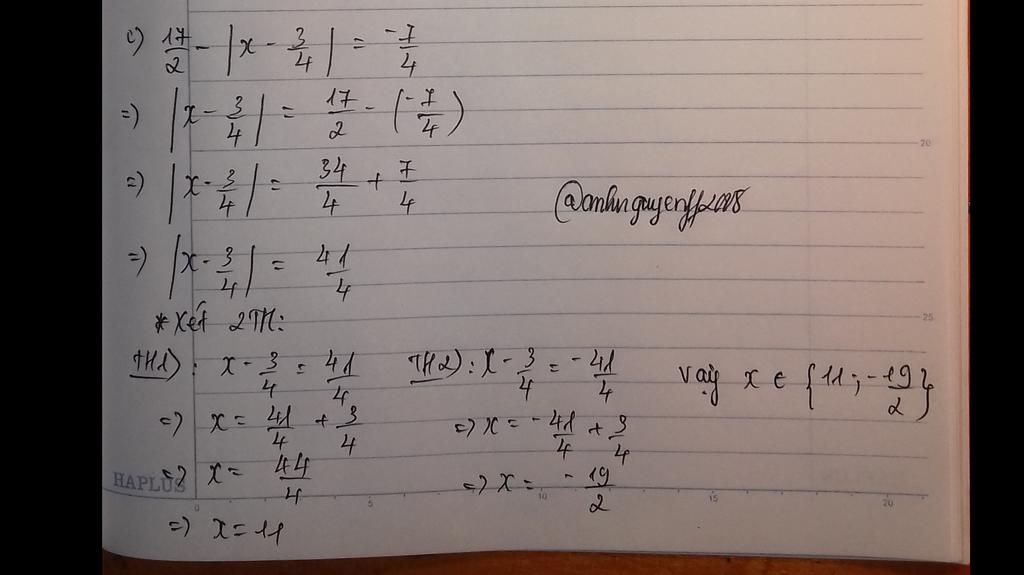 c) 17/2 - |x - 3/4| = -7/4
=) |x - 3/4| = 17/2 - (-7/4)
=) |x - 3/4| = 34/4 + 7/4
@anhnguyenff2008
=) |x - 3/4| = 41/4
* Xét 2TH:
TH1): x - 3/4 = 41/4
=) x = 41/4 + 3/4
=) x = 44/4
=) x = 11
TH2): x - 3/4 = -41/4
=) x = -41/4 + 3/4
=) x = -19/2
Vậy x ∈ {11; -19/2}
HAPLUS
0 5 10 15 20
20
25